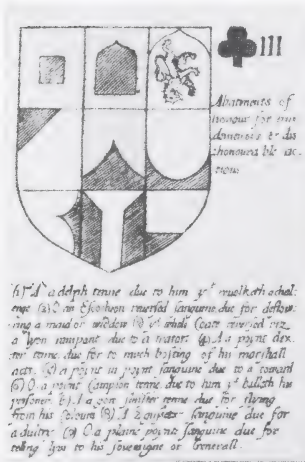 III
Abatments of
honour for
& dis
honourable ac
tions
A delph tenne due to him yt revoketh a chal
enge (2) O an Escocheon reversed sanguine due for deflow
ring a maid or widdow (3) ye whole Coate reversed viz.
a Lyon rampant due to a traitor (4) A a poynt dex
ter tenne due for to much bosting of his marshall
acts (5) a poynt in poynt sanguine due to a coward
(6) O a poynt Campion tenne due to him yt killeth his
prisoner A a gore sinister tenne due for flying
from his Colours (8) A 2 gussets sanguine due for
adultry (9) O a plaine poynt sanguine due for
telling lyes to his soveraigne or Generall